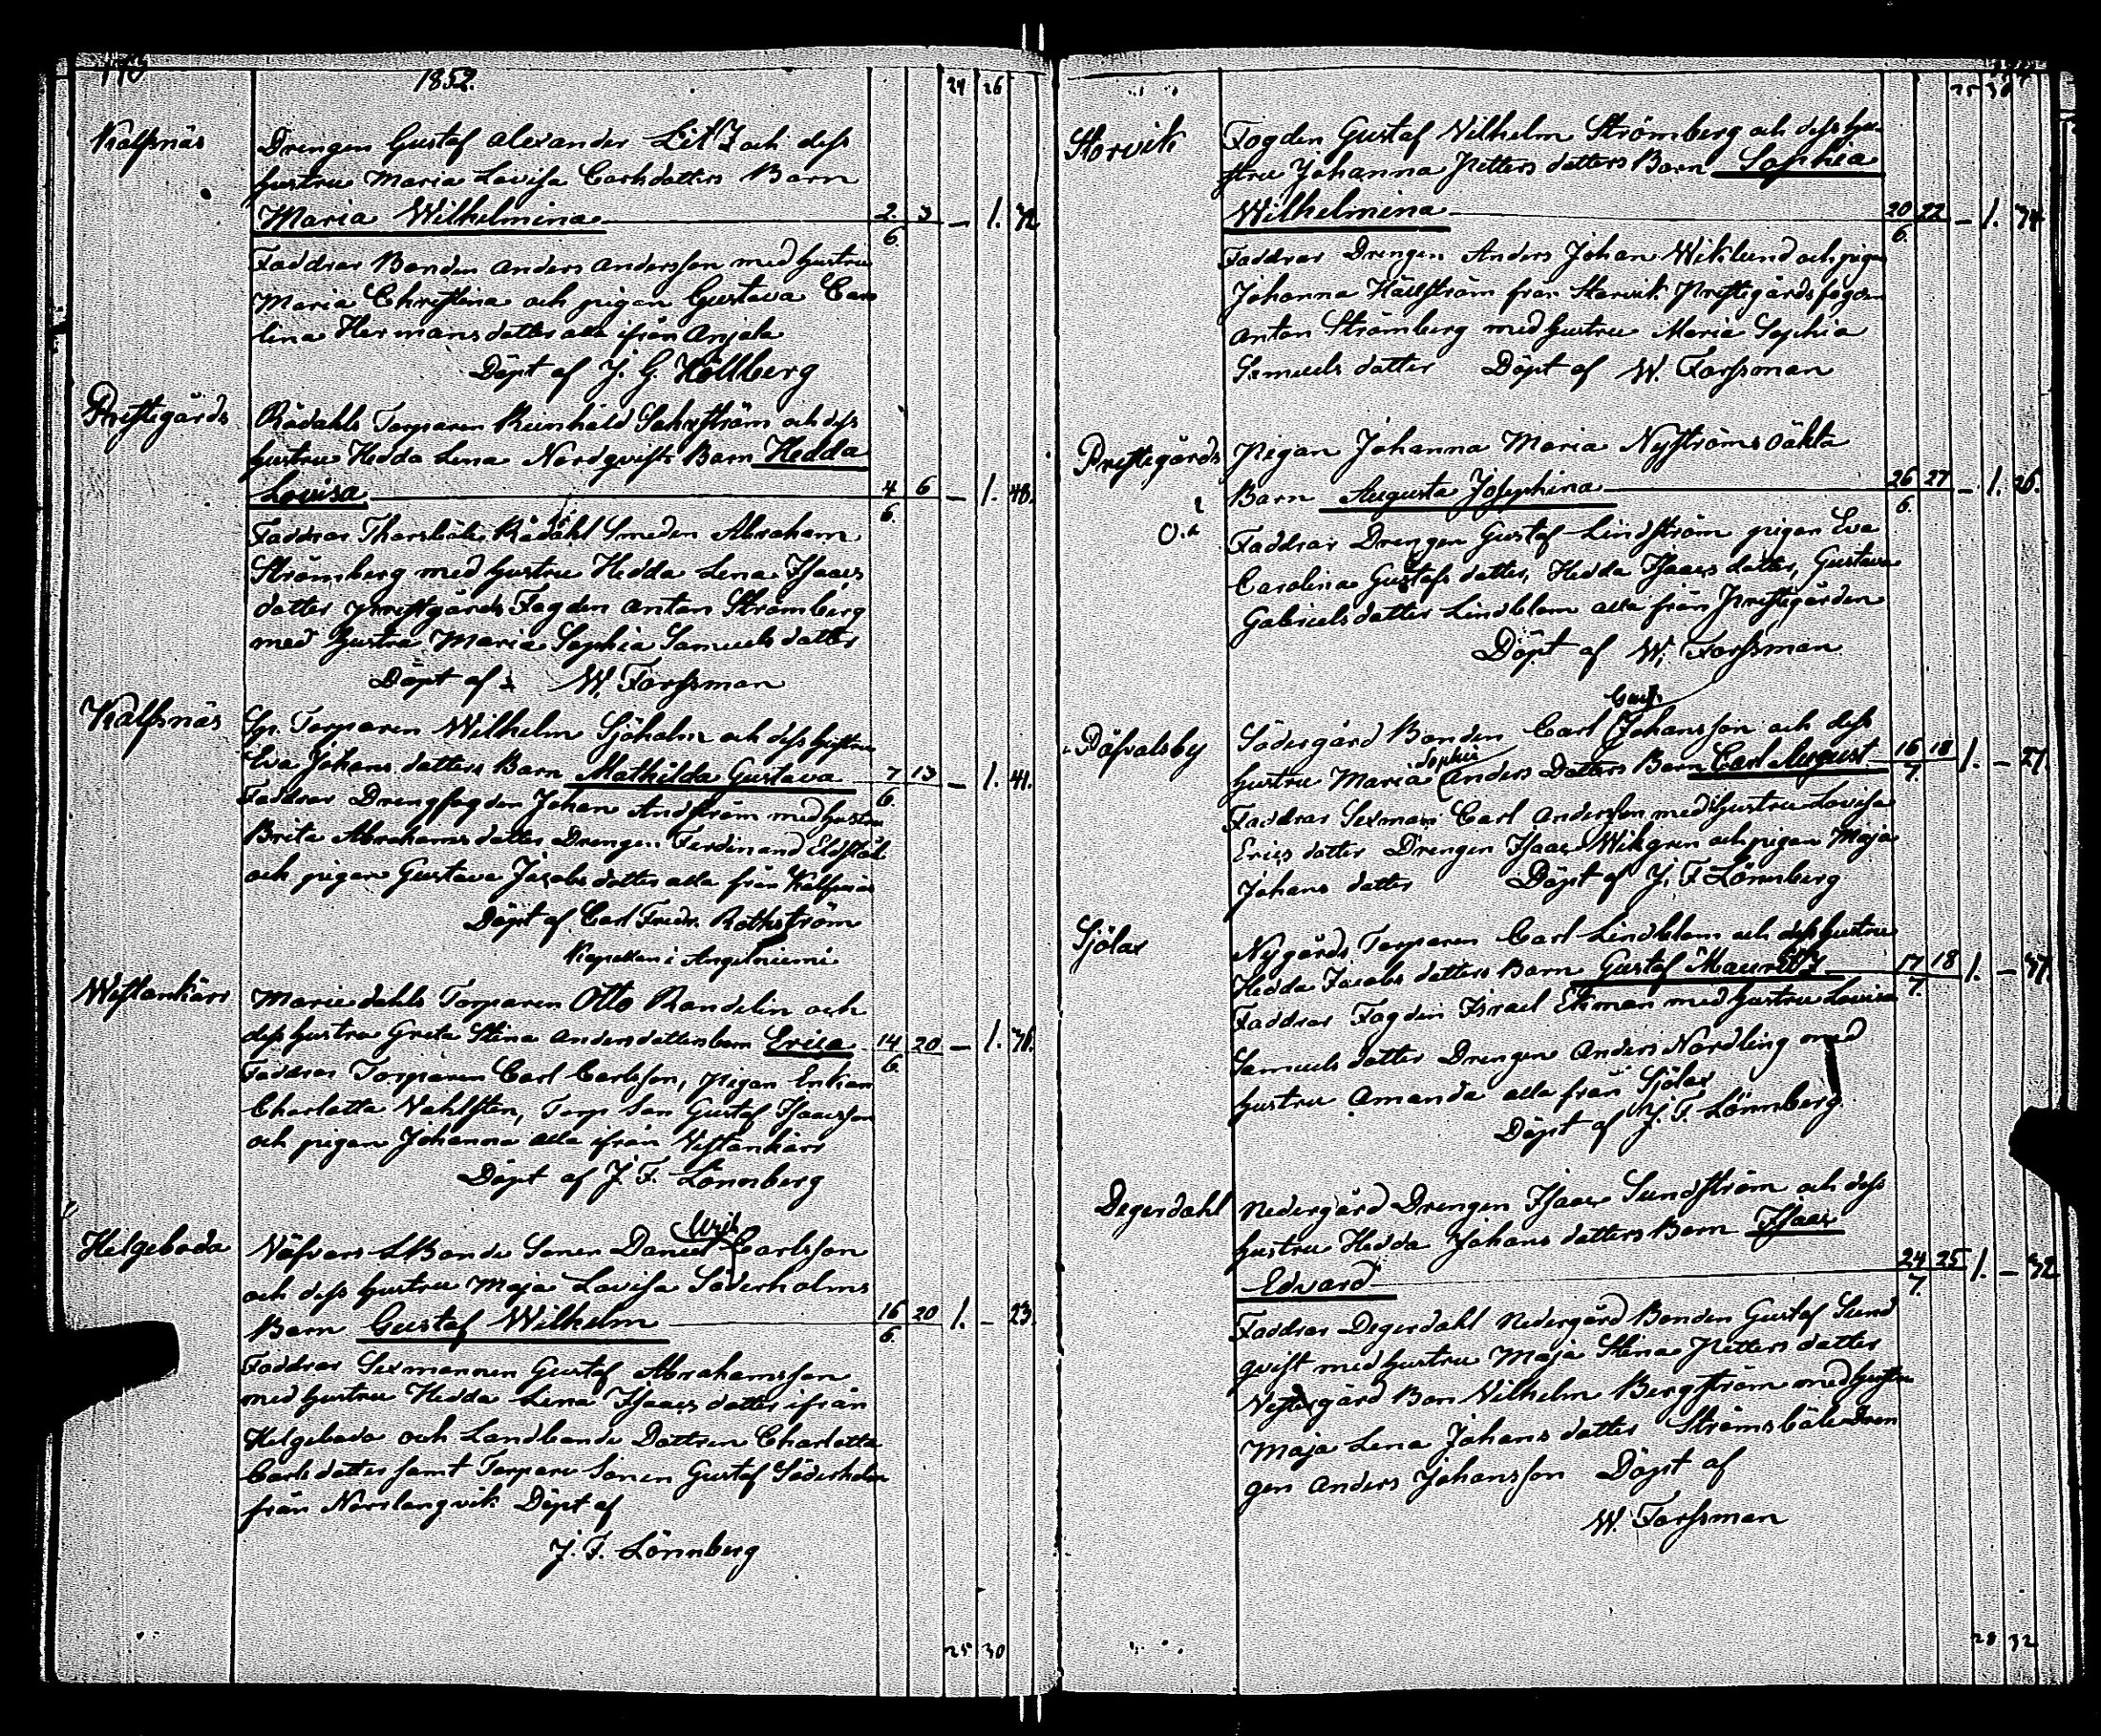 1852.
24 26
Kalfsnäs
Drengen Gustaf Alexander Litz och dess
hustru Maria Lovisa Carlsdotters Barn
Maria Wilhelmina 2. 3 — 1. 32
6.
Faddrar Bonden Anders Andersson med hustru
Maria Christina och pigan Gustava Caro
lina Hermansdotter alla ifrån Anjala
Döpt af J. G. Hollberg
Prestegårds
Rådahls Torparen Reinhold Sahrström och dess
hustru Hedda Lena Nordqvists Barn Hedda
Lovisa 4 6 — 1. 48.
6.
Faddrar Rådahl Smeden Abraham
Strömberg med hustru Hedda Lena Isaacs
dotter prestgårds Fogden Anton Strömberg
med hustru Maria Sophia Samuels dotter
Döpt af W. Forssman
Kalfsnäs
Sp. Torparen Wilhelm Sjöholm och dess hustru
Eva Johans dotters Barn Mathilda Gustava 7 13 — 1. 41.
6.
Faddrar Drengfogden Johan Andström med hustru
Brita Abrahams dotter Drengen Ferdinand Eldstål
och pigan Gustava Jacobs dotter alla från Kalfsnäs
Döpt af Carl Fredr. Rothström
Kapellan i Angelniemi
Wistankärr
Mariedahls Torparen Otto Randelin och
dess hustru Greta Stina Andersdotters barn Erica 14 20 — 1. 36.
6.
Faddrar Torparen Carl Carlsson, pigan Enkan
Charlotta Vahlsten, Torp Son Gustaf Isaacsson
och pigan Johanna alla ifrån Vistankärr
Döpt af J. F. Lönnberg
Helgeboda
Ulrik
Näfvers LBonde Sonen Daniel Carlsson
och dess hustru Maja Lovisa Söderholms
Barn Gustaf Wilhelm 16 20 1. — 23.
6.
Faddrar Sexmannen Gustaf Abrahamsson
med hustru Hedda Lena Isaacs dotter ifrån
Helgeboda och Landbonde Dottren Charlotta
Carls dotter samt Torpare Sonen Gustaf Söderholm
från Norrlangvik Döpt af
J. F. Lönnberg
25 30
25 30
Storvik
Fogden Gustaf Wilhelm Strömberg och dess hu-
stru Johanna Petters dotters Barn Sophia
Wilhelmina 20 22 — 1. 34
6.
Faddrar Drengen Anders Johan Wiklund och pigan
Johanna Hällström från Storvik Prestegårdsfogden
Anton Strömberg med hustru Maria Sophia
Samuels dotter Döpt af W. Forssman
Prestegårds
Pigan Johanna Maria Nyströms oäkta
Barn Augusta Josephina 26 27 — 1. 26.
6.
O.ä
Faddrar Drengen Gustaf Lindström pigan Eva
Carolina Gustafs dotter, Hedda Isaacs dotter, Gustava
Gabriels dotter Lindblom alla från Prestegården
Döpt af W. Forssman
Påfvalsby
Gust.
Södergård Bonden Carl Johansson och dess
Sophia
hustru Maria Anders Dotters Barn Carl August 16 18 1. — 27.
7.
Faddrar Sexman Carl Andersson med hustru Lovisa
Erics dotter Drengen Isaac Wikgren och pigan Maja
Johans dotter Döpt af J. F. Lönnberg
Sjölax
Nygårds Torparen Carl Lindblom och dess hustru
Hedda Jacobs dotters Barn Gustaf Mauritz 17 18 1. — 37.
7.
Faddrar Fogden Israel Ekman med hustru Lovisa
Samuels dotter Drengen Anders Nordling med
hustru Amanda alla från Sjölax
Döpt af J. F. Lönnberg
Degerdahl
Nedergård Drengen Isaac Sundström och dess
hustru Hedda Johans dotters Barn Isaac
Edvard 24 25 1. — 32
7.
Faddrar Degerdahl Nedergård Bonden Gustaf Sund
qvist med hustru Maja Stina Petters dotter
Vestergård Bon Vilhelm Bergström med hustru
Maja Lena Johans dotter Strömsböle Dren
gen Anders Johansson Döpt af
W. Forssman
28 32